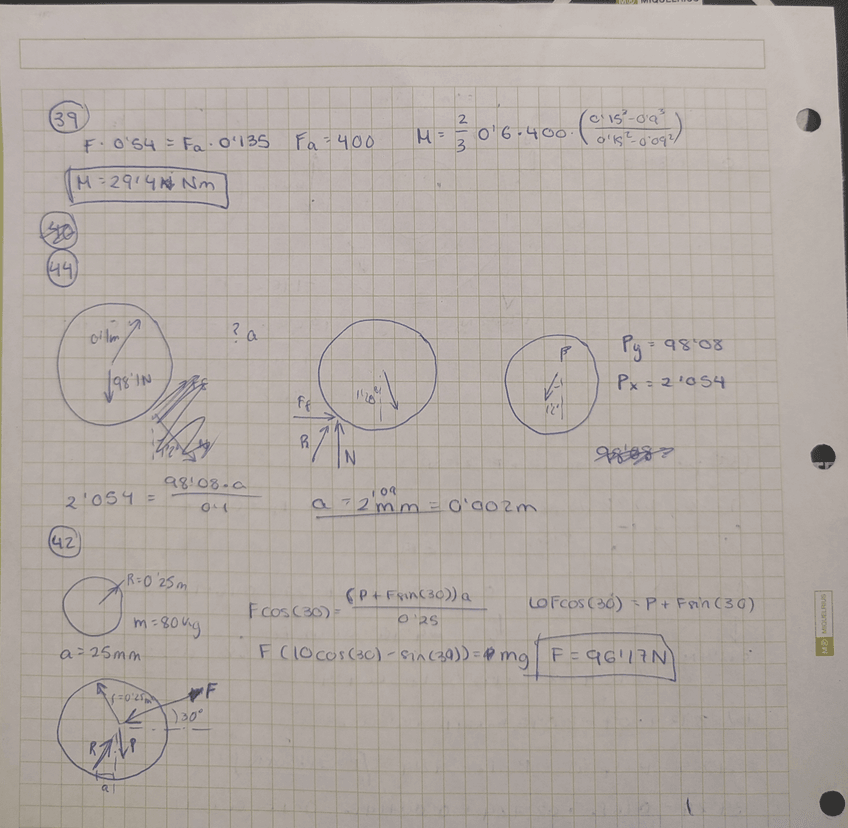 39
F · 0'54 = Fa · 0'135 Fa = 400 M = 2/3 0'6 · 400 · (0'15³ - 0'9³ / 0'15² - 0'09²)
M = 29'4 Nm
44
0'1m
98'1N
? a
Ff
R
N
1'20"
P
1'2'
Py = 98'08
Px = 2'054
2'054 = 98'08 · a / 0'1
a = 2'09 mm = 0'002m
42
R = 0'25m
m = 80kg
a = 25mm
Fcos(30) = (P + Fsin(30))a / 0'25
10Fcos(30) = P + Fsin(30)
F(10cos(30) - sin(30)) = mg F = 96'17N
r = 0'25m
F
30°
R
P
a
MIQUELRIUS